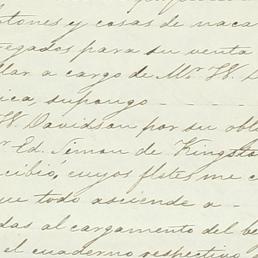 otones y cosas de naca
regados para su venta
lar a cargo de Mr. W. D
ica, supongo
W. Davidson por su obl
Ed. Simon de Kingsto
cibió, cuyos fletes me c
ue todo asciende a
das al cargamento del be
el cuaderno respectivo